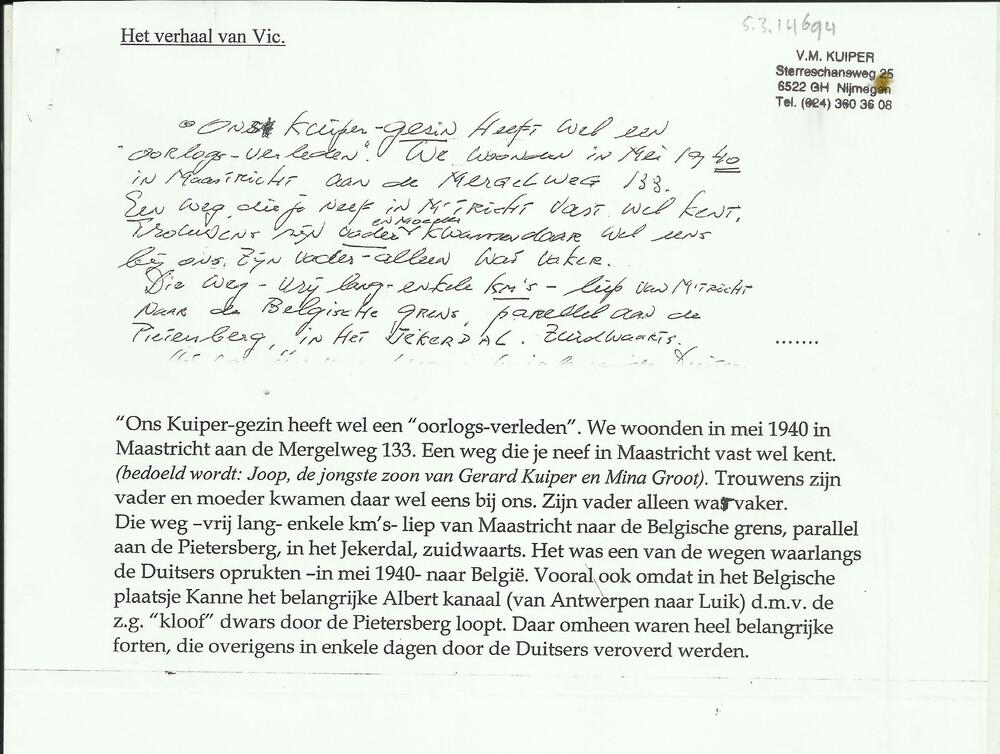 5.3.14694
Het verhaal van Vic.
V.M. KUIPER
Sterreschansweg 25
6522 GH Nijmegen
Tel. (024) 360 36 08
Ons Kuiper-gezin Heeft wel een
"oorlogs-verleden". We woonden in Mei 1940
in Maastricht aan de Mergelweg 133.
Een weg die je neef in M'tricht vast wel kent.
Trouwens zijn vader en moeder kwamen daar wel eens
bij ons. Zijn vader-alleen was vaker.
Die weg - vrij lang - enkele km's - liep van M'tricht
naar de Belgische grens, parellel aan de
Pietersberg, in Het Jekerdal. Zuidwaarts.
.......
"Ons Kuiper-gezin heeft wel een "oorlogs-verleden". We woonden in mei 1940 in
Maastricht aan de Mergelweg 133. Een weg die je neef in Maastricht vast wel kent.
(bedoeld wordt: Joop, de jongste zoon van Gerard Kuiper en Mina Groot). Trouwens zijn
vader en moeder kwamen daar wel eens bij ons. Zijn vader alleen was vaker.
Die weg –vrij lang- enkele km's- liep van Maastricht naar de Belgische grens, parallel
aan de Pietersberg, in het Jekerdal, zuidwaarts. Het was een van de wegen waarlangs
de Duitsers oprukten –in mei 1940- naar België. Vooral ook omdat in het Belgische
plaatsje Kanne het belangrijke Albert kanaal (van Antwerpen naar Luik) d.m.v. de
z.g. "kloof" dwars door de Pietersberg loopt. Daar omheen waren heel belangrijke
forten, die overigens in enkele dagen door de Duitsers veroverd werden.